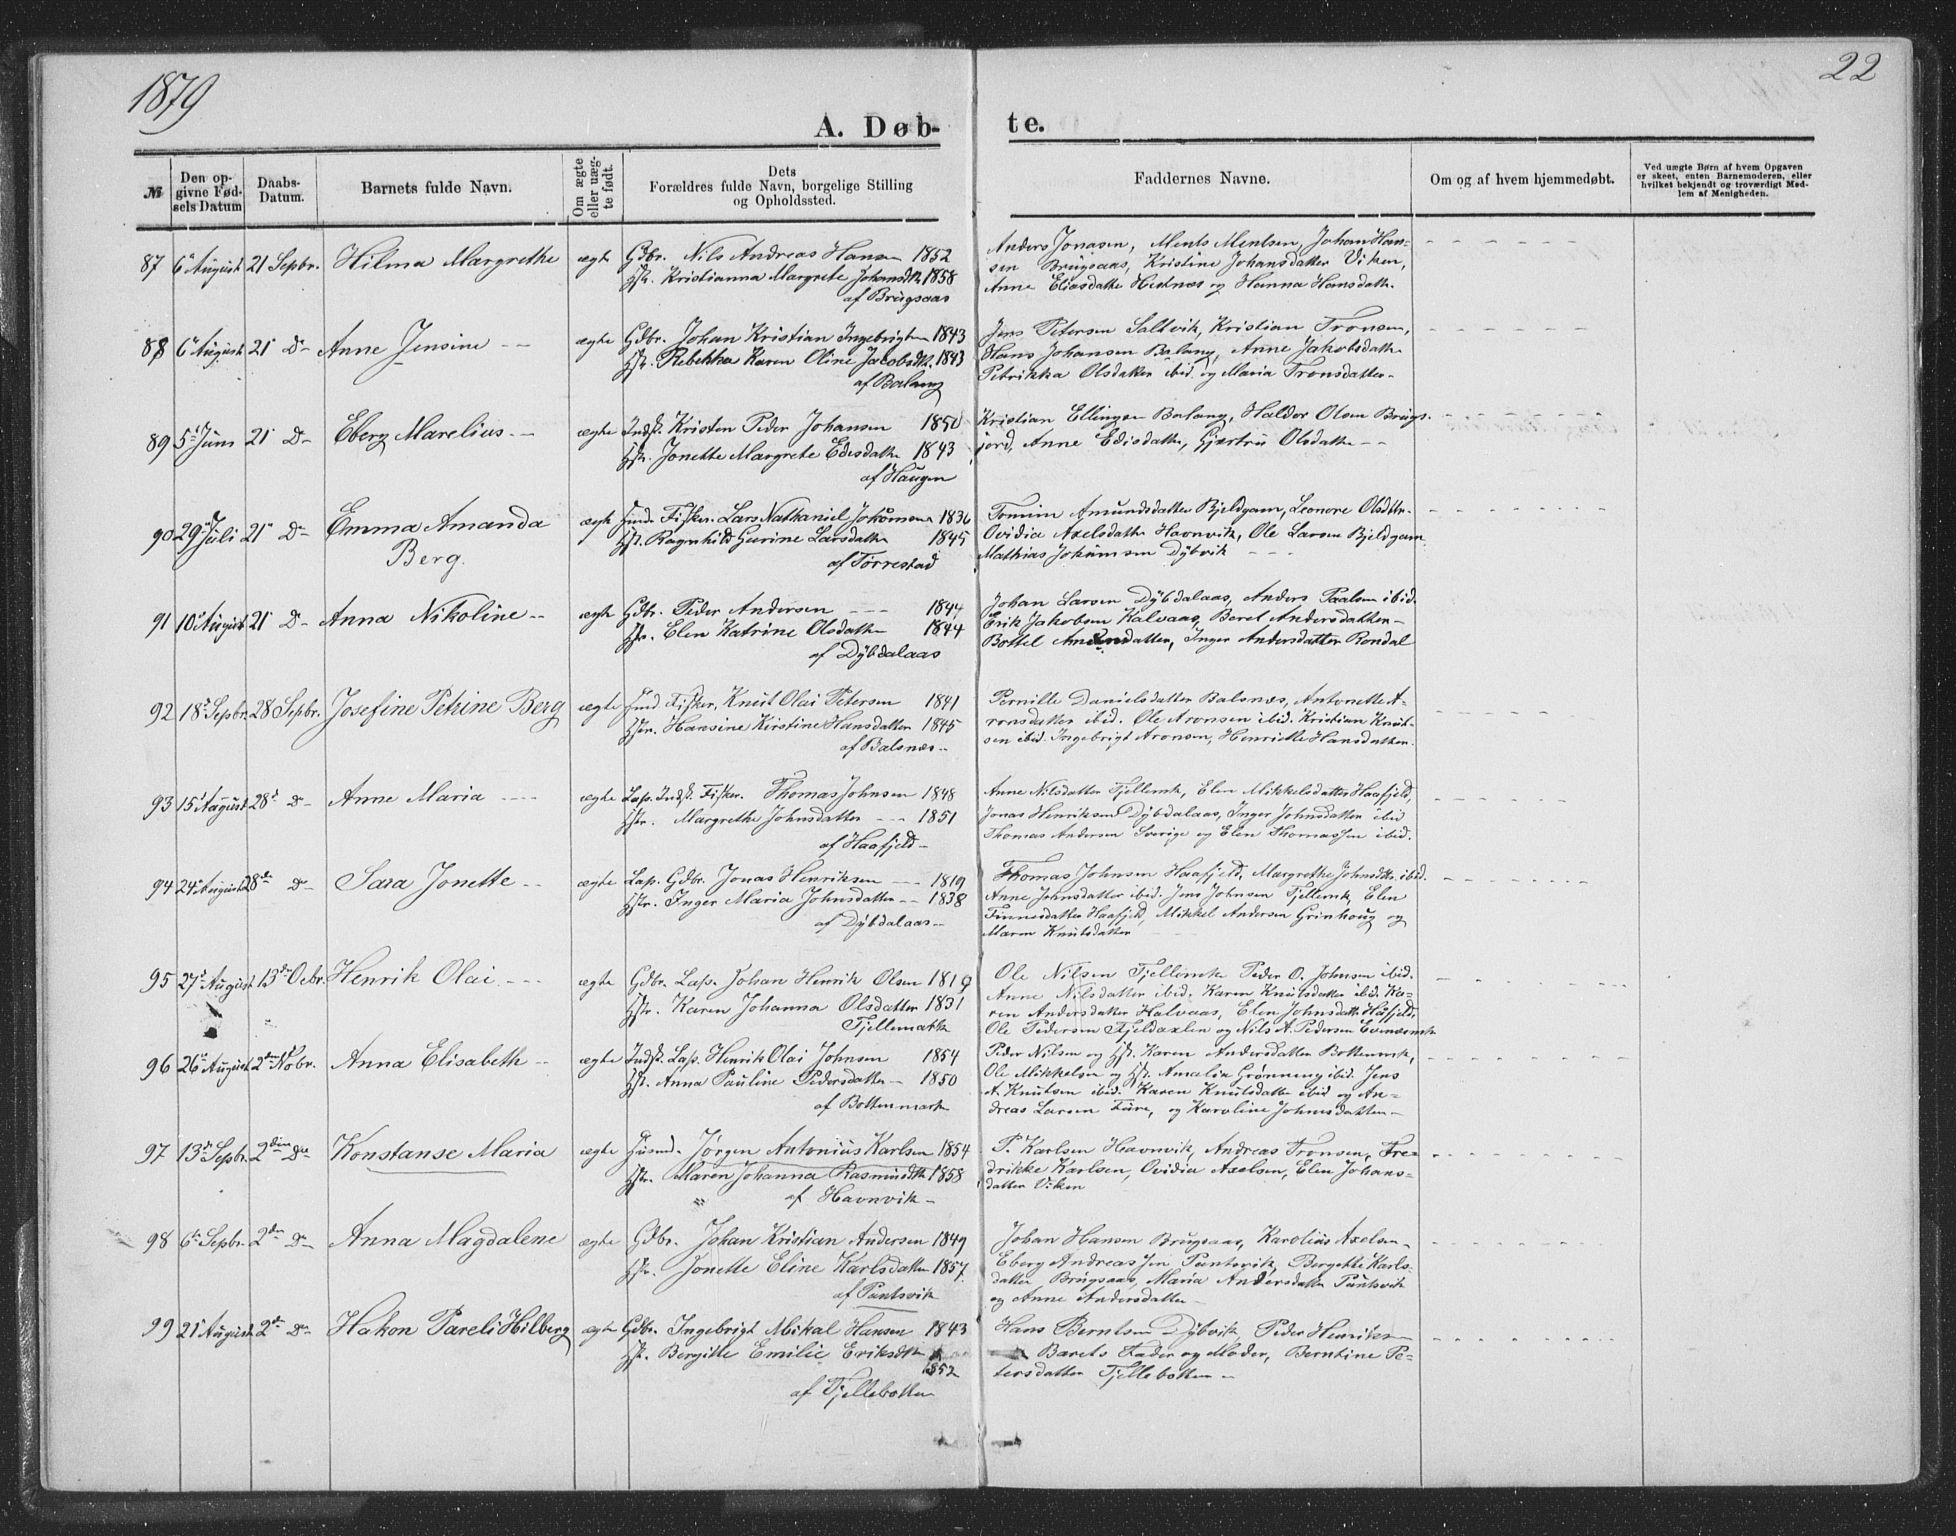 1879
22
A. Døb-
te.
№
Den op-
givne Fød-
sels Datum
Daabs-
Datum.
Barnets fulde Navn.
Om ægte
eller uæg-
te født.
Dets
Forældres fulde Navn, borgelige Stilling
og Opholdssted.
Faddernes Navne.
Om og af hvem hjemmedøbt.
Ved uægte Børn af hvem Opgaven
er skeet, enten Barnemoderen, eller
hvilket bekjendt og troværdigt Med-
lem af Menigheden.
87 6 August 21 Sepbr. Hilma Margrethe ægte Gdbr. Nils Andreas Hansen 1852
Hstr. Kristianna Margrete Johansdtr 1858
af Brugsaas
Anders Jonasen, Ments Mentsen, Johan Han-
sen Brugsaas, Kristine Johansdatter Viken,
Anne Eliasdatter og Hanna Hansdatter.
88 6 August 21 D- Anne Jensine -- ægte Gdbr. Johan Kristian Ingebrigtsen 1843
Hstr. Rebekka Karen Oline Jacobsdtr. 1843
af Balang
Jens Petersen Saltvik, Kristian Tronsen,
Hans Johansen Balang, Anne Jakobsdatter
Petrikka Olsdatter ibid og Maria Tronsdatter-
89 5 Juni 21 D- Eberg Marelius -- ægte Indst. Kristen Peder Johansen 1850
Hstr. Jonette Margrete Edisdatter 1843
af Haugen
Kristian Ellingsen Balang, Haldor Olsen Brugs-
jord, Anne Edisdatter, Gjertru Olsdatter --
90 29 Juli 21 D- Emma Amanda
Berg.
ægte Fisker. Lars Nathaniel 1836
Hst. Ragnhild Gurine Larsdatter 1845
af Torrestad
Amundsdatter Bjeldgam, Leonore Olsdtr-
Ovidia Axelsdatter Havnvik, Ole Larsen Bjeldgam.
Mathias Dybvik ---
91 10 August 21 D- Anna Nikoline -- ægte Gdbr. Peder Andersen --- 1844
Hstr. Elen Katrine Olsdatter 1844
af Dybdalaas
Johan Larsen Dybdalaas, Anders Paalsen ibid.
Erik Jakobsen Kalvaas, Beret Andersdatter-
Bottel Amundsdatter, Inger Andersdatter Rondal
92 18 Sepbr. 28 Sepbr. Josefine Petrine Berg ægte Fisker, Knut Olai Petersen 1841
Hstr. Hansine Kirstine Hansdatter 1845
af Balsnæs--
Pernille Danielsdatter Balsnæs, Antonette A-
ronsdatter ibid. Ole Aronsen ibid. Kristian Knut-
sen ibid. Ingebrigt Aronsen, Henriette Hansdatter.
93 15 August 28 D- Anne Maria ---- ægte Lap. Indst. Fisker. Thomas Johnsen 1848
Hstr. Margrethe Johnsdatter --- 1851
af Haafjeld-
Anne Nilsdatter Tjellemk, Elen Mikkelsdatter Haafjeld,
Jonas Henriksen Dybdalaas, Inger Johnsdatter ibid
Thomas Andersen Sverige og Elen Thomassen ibid.
94 24 August 28de D- Sara Jonette -- ægte Lap. Gdbr. Jonas Henriksen --- 1819
Hstr. Inger Maria Johnsdatter -- 1838
af Dybdalaas-
Thomas Johnsen Haafjeld, Margrethe Johnsdtr ibid.
Anne Johnsdatter ibid. Jens Johnsen Tjellemk, Elen
Finnesdatter Haafjeld, Mikkel Andersen Grinhoug og
Maren Knutsdatter
95 27 August 13de Ocbr. Henrik Olai --- ægte Gdbr. Lap. Johan Henrik Olsen 1819
Hstr. Karen Johanna Olsdatter 1831
Tjellemark
Ole Nilsen Tjellemk Peder O. Johnsen ibid.
Anne Nilsdatter ibid. Karen Knutsdatter ibid. Ka-
ren Andersdatter Halvaas, Elen Johnsdatter Haafjeld,
Ole Pedersen Fjeldaxlen og Nils A. Pedersen Evenesmk
96 26 August 2den Nobr. Anna Elisabeth -- ægte Indst. Lap. Henrik Olai Johnsen 1854
Hst. Anna Pauline Pedersdatter - 1850
af Bottenmark
Peder Nilsen og Hst. Karen Andersdatter Bottenmk,
Ole Mikkelsen og Hst. Amalia Grønneng ibid. Jens
A. Knutsen ibid. Karen Knutsdatter ibid og An-
dreas Larsen Fure, og Karoline Johnsdatter-
97 13 Sepbr. 2den D- Konstanse Maria ægte Husmd. Jørgen Antonius Karlsen 1854
Hstr. Maren Johanna Rasmusdtr 1858
af Havnvik-
P. Karlsen Havnvik, Andreas Tronsen, Fre-
drikke Karlsen, Ovidia Axelsen, Elen Johans-
datter Viken
98 6te Sepbr. 2den D- Anna Magdalene ægte Gdbr. Johan Kristian Andersen 1849
Hstr. Jonette Eline Karlsdatter 1857.
af Puntsvik
Johan Hansen Brugsaas, Karolius Axelsen-
Eberg Andreassen Puntsvik, Bergette Karls-
datter Brugsaas, Maria Andersdatter Puntsvik
og Anne Andersdatter-
99 21 August 2den D- Hakon Pareli Hilberg ægte Gdbr. Ingebrigt Mikal Hansen 1843
Hst. Bergitte Emilie Eriksdtr
1852
af Tjellebotten
Hans Berntsen Dybvik, Peder Henriksen
Barets Fader og Moder, Berntine Pe-
tersdatter Tjellebotten -